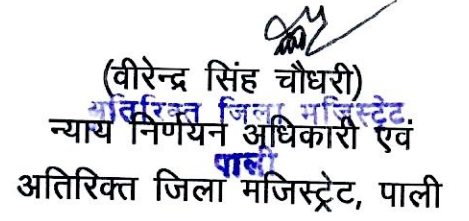 (वीरेन्द्र सिंह चौधरी)
अतिरिक्त जिला मजिस्ट्रेट
न्याय निर्णयन अधिकारी एवं
पाली
अतिरिक्त जिला मजिस्ट्रेट, पाली